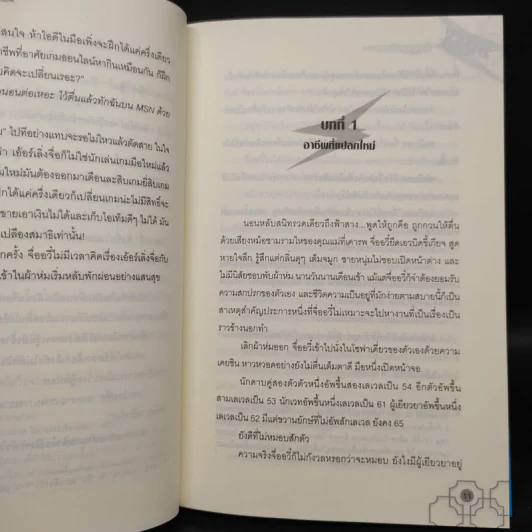 สนใจ ห้าไอดีในมือเพิ่งจะฝึกได้แค่ครึ่งเดียว
ชีพที่อาศัยเกมออนไลน์หากินเหมือนกัน ก็มีก
คิดจะเปลี่ยนเรอะ?"
นอนต่อเหอะ ไว้ตื่นแล้วทักฉันบน MSN ด้วย
" ไปที่อย่างแทบจะรอไม่ไหวแล้วตัดสาย ในใจ
า เอ้อร์เลิ่งจื่อก็ไม่ใช่นักเล่นเกมมือใหม่แล้ว
มใหม่มันต้องออกมาเดือนละสิบเกมยี่สิบเกม
ได้แค่ครึ่งเดียวก็เปลี่ยนเกมน่ะไม่มีสิทธิ์จะ
ขายเอาเงินก็ไม่ได้ และเก็บไอเท็มดีๆ ไม่ได้ มัน
เปลืองสมาธิเท่านั้น!
กครั้ง จื่ออวี่ไม่มีเวลาคิดเรื่องเอ้อร์เลิ่งจื่อกับ
เข้าในผ้าห่มเริ่มหลับพักผ่อนอย่างแสนสุข
บทที่ 1
อาชีพที่แปลกใหม่
นอนหลับสนิทรวดเดียวถึงฟ้าสาง...พูดให้ถูกคือ ถูกกวนให้ตื่น
ด้วยเสียงหม้อชามรามไหของคุณแม่ที่เคารพ จื่ออวี่ยืดเอวบิดขี้เกียจ สูด
หายใจลึก รู้สึกแต่กลิ่นตุๆ เต็มจมูก ชายหนุ่มไม่ชอบเปิดหน้าต่าง และ
ไม่มีนิสัยชอบพับผ้าห่ม นานวันนานเดือนเข้า แม้แต่จื่ออวี่ก็จำต้องยอมรับ
ความสกปรกของตัวเอง และชีวิตความเป็นอยู่ที่มักง่ายตามสบายนี้ก็เป็น
สาเหตุสำคัญประการหนึ่งที่จื่ออวี่ไม่เหมาะจะไปหางานที่เป็นเรื่องเป็น
ราวข้างนอกทำ
เลิกผ้าห่มออก จื่ออวี่เข้าไปนั่งในโซฟาเดี่ยวของตัวเองด้วยความ
เคยชิน หาวหวอดอย่างยังไม่ตื่นเต็มตาดี มือหนึ่งเปิดหน้าจอ
นักดาบคู่สองตัวตัวหนึ่งอัพขึ้นสองเลเวลเป็น 54 อีกตัวอัพขึ้น
สามเลเวลเป็น 53 นักเวทอัพขึ้นหนึ่งเลเวลเป็น 61 ผู้เยียวยาอัพขึ้นหนึ่ง
เลเวลเป็น 52 มีแต่ขวานยักษ์ที่ไม่อัพสักเลเวล ยังคง 65
ยังดีที่ไม่หมอบสักตัว
ความจริงจื่ออวี่ก็ไม่กังวลหรอกว่าจะหมอบ ยังไงมีผู้เยียวยาอยู่
11